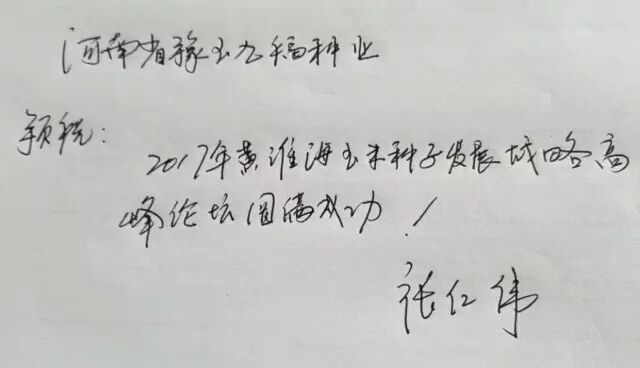 河南省豫玉九福种业
预祝:
2017年黄淮海玉米种子发展战略高
峰论坛圆满成功!
张仁伟